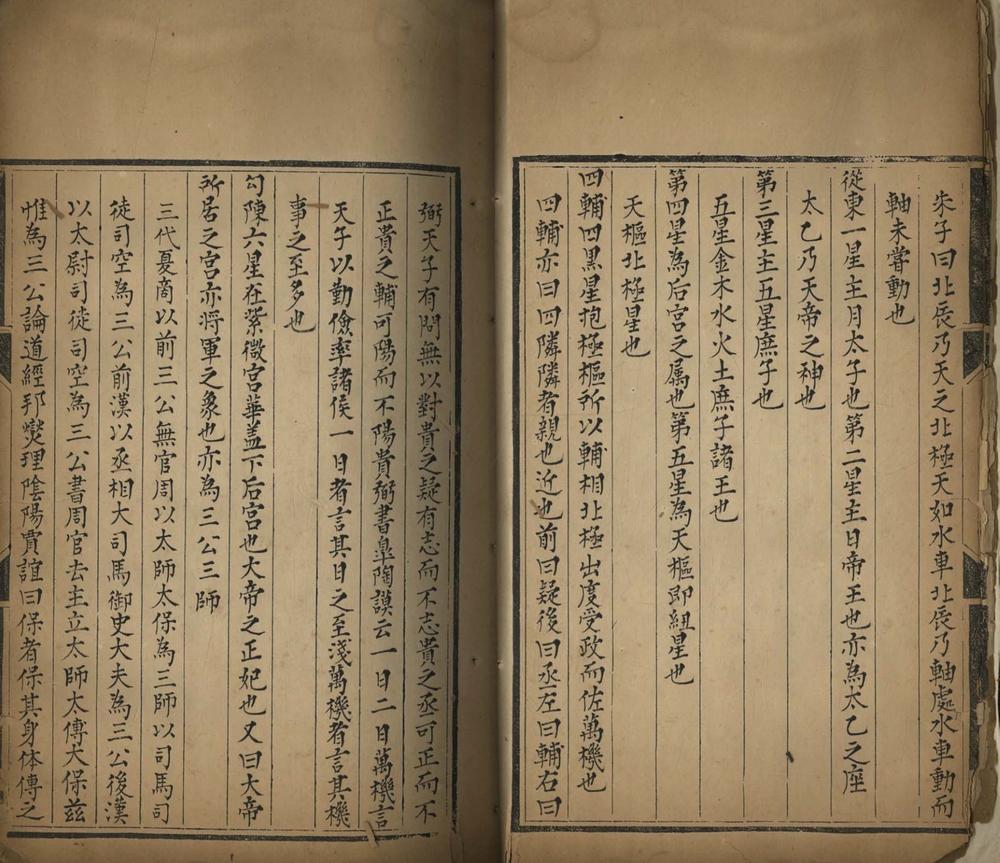 朱子曰北辰乃天之北極天如水車北辰乃軸處水車動而
軸未嘗動也
從東一星主月太子也第二星主日帝王也亦為太乙之座
太乙乃天帝之神也
第三星主五星庶子也
五星金木水火土庶子諸王也
第四星為后宮之属也第五星為天樞即紐星也
天樞北極星也
四輔四黑星抱極樞所以輔相北極出度受政而佐萬機也
四輔亦曰四隣隣者親也近也前曰疑後曰丞左曰輔右曰
弼天子有問無以對責之疑有志而不志責之丞可正而不
正責之輔可陽而不陽責弼書臯陶謨云一日二日萬機言
天子以勤儉率諸侯一日者言其日之至淺萬機者言其機
事之至多也
勾陳六星在紫微宮華盖下后宮也大帝之正妃也又曰大帝
所居之宮亦将軍之象也亦為三公三師
三代夏商以前三公無官周以太師太保為三師以司馬司
徒司空為三公前漢以丞相大司馬御史大夫為三公後漢
以太尉司徒司空為三公書周官去主立太師太傅太保茲
惟為三公論道經邦燮理陰陽賈誼曰保者保其身体傅之